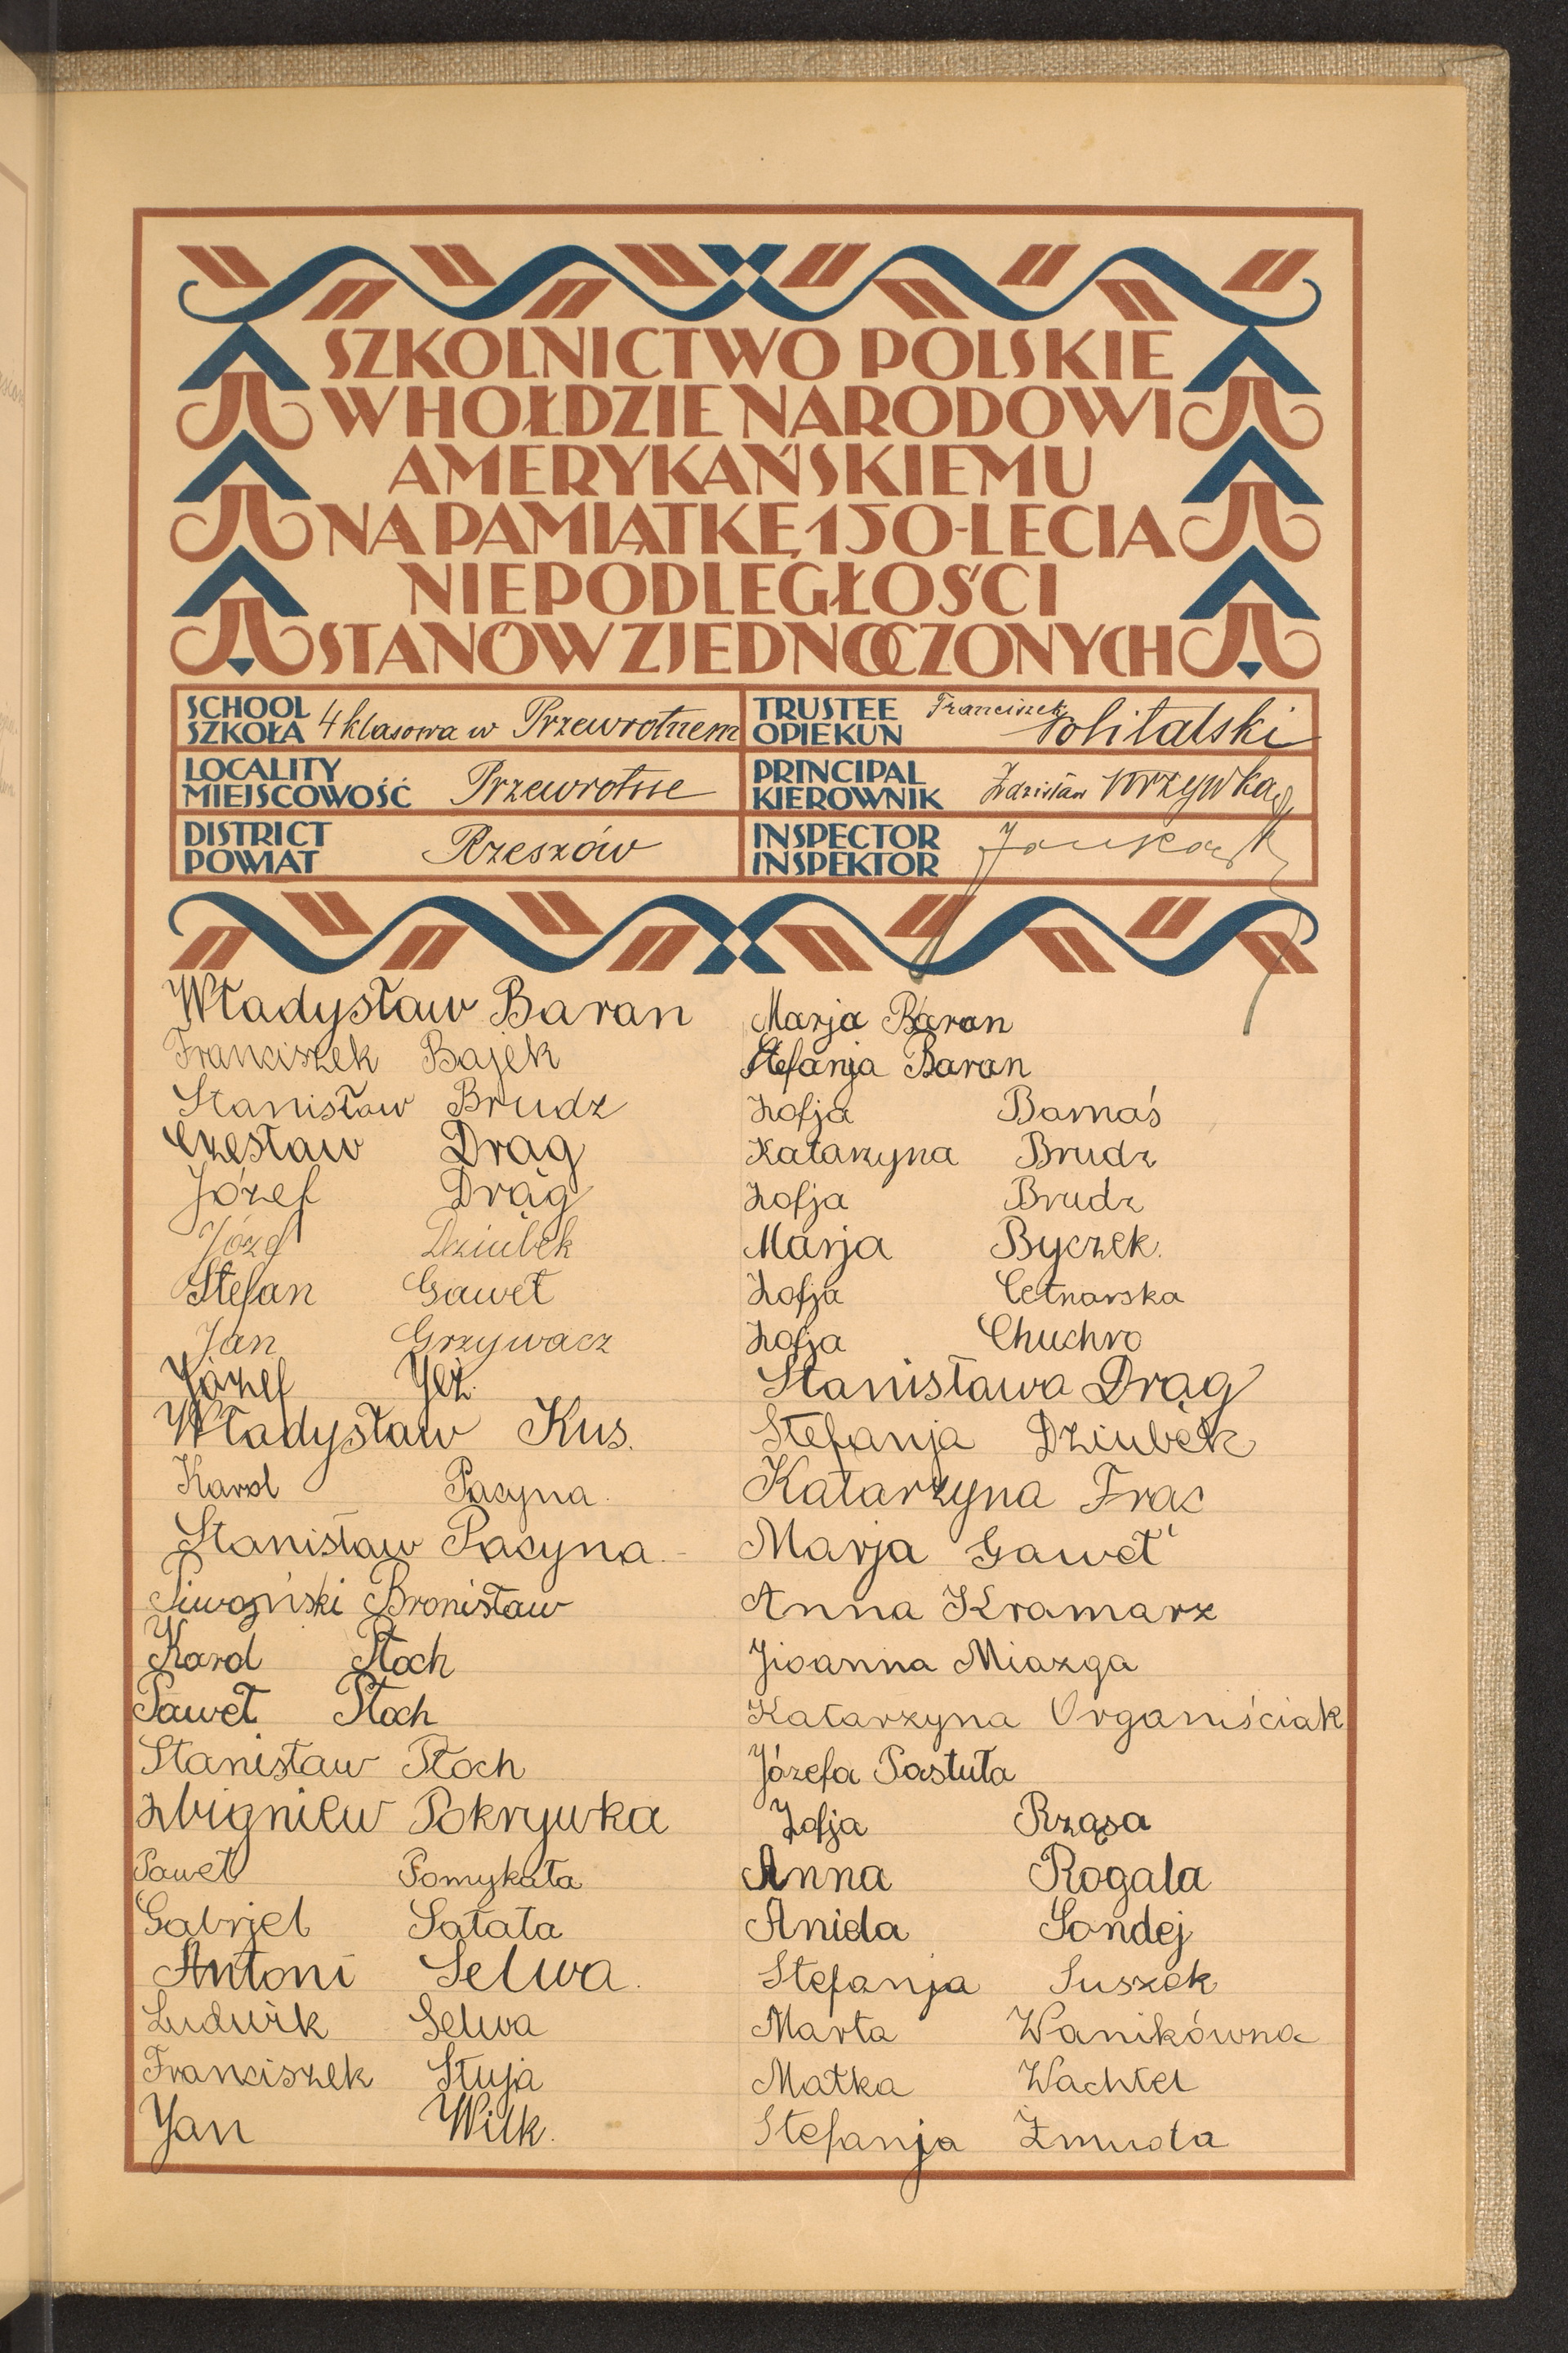 SZKOLNICTWO POLSKIE
W HOŁDZIE NARODOWI
AMERYKAŃSKIEMU
NA PAMIĄTKĘ 150-LECIA
NIEPODLEGŁOŚCI
STANÓW ZJEDNOCZONYCH
SCHOOL
SZKOŁA 4 klasowa w Przewrotnem
TRUSTEE
OPIEKUN Franciszek
LOCALITY
MIEJSCOWOŚĆ Przewrotne
PRINCIPAL
KIEROWNIK Zdzisław Krzywka
DISTRICT
POWIAT Rzeszów
INSPECTOR
INSPEKTOR
Władysław Baran
Franciszek Bajek
Stanisław Brudz
Czesław Drąg
Józef Drąg
Józef Dziubek
Stefan Gaweł
Jan Grzywacz
Józef Jeż.
Władysław Kus.
Karol Pacyna.
Stanisław Pacyna.
Bronisław
Karol Płoch
Paweł Płoch
Stanisław Płoch
Zbigniew Pokrywka
Paweł Pomykała
Gabrjel Sałata
Antoni Selwa.
Ludwik Selwa
Franciszek Słuja
Jan Wilk.
Marja Baran
Stefanja Baran
Zofja Barnaś
Katarzyna Brudz
Zofja Brudz
Marja Byczek.
Zofja Cetnarska
Zofja Chuchro
Stanisława Drąg
Stefanja Dziubek
Katarzyna Frąc
Marja Gaweł
Anna Kramarz
Joanna Miazga
Katarzyna Organiściak
Józefa Pastuła
Zofja Rząsa
Anna Rogala
Aniela Sondej
Stefanja Suszek
Marta Wanikówna
Małka Wachtel
Stefanja Żmuda